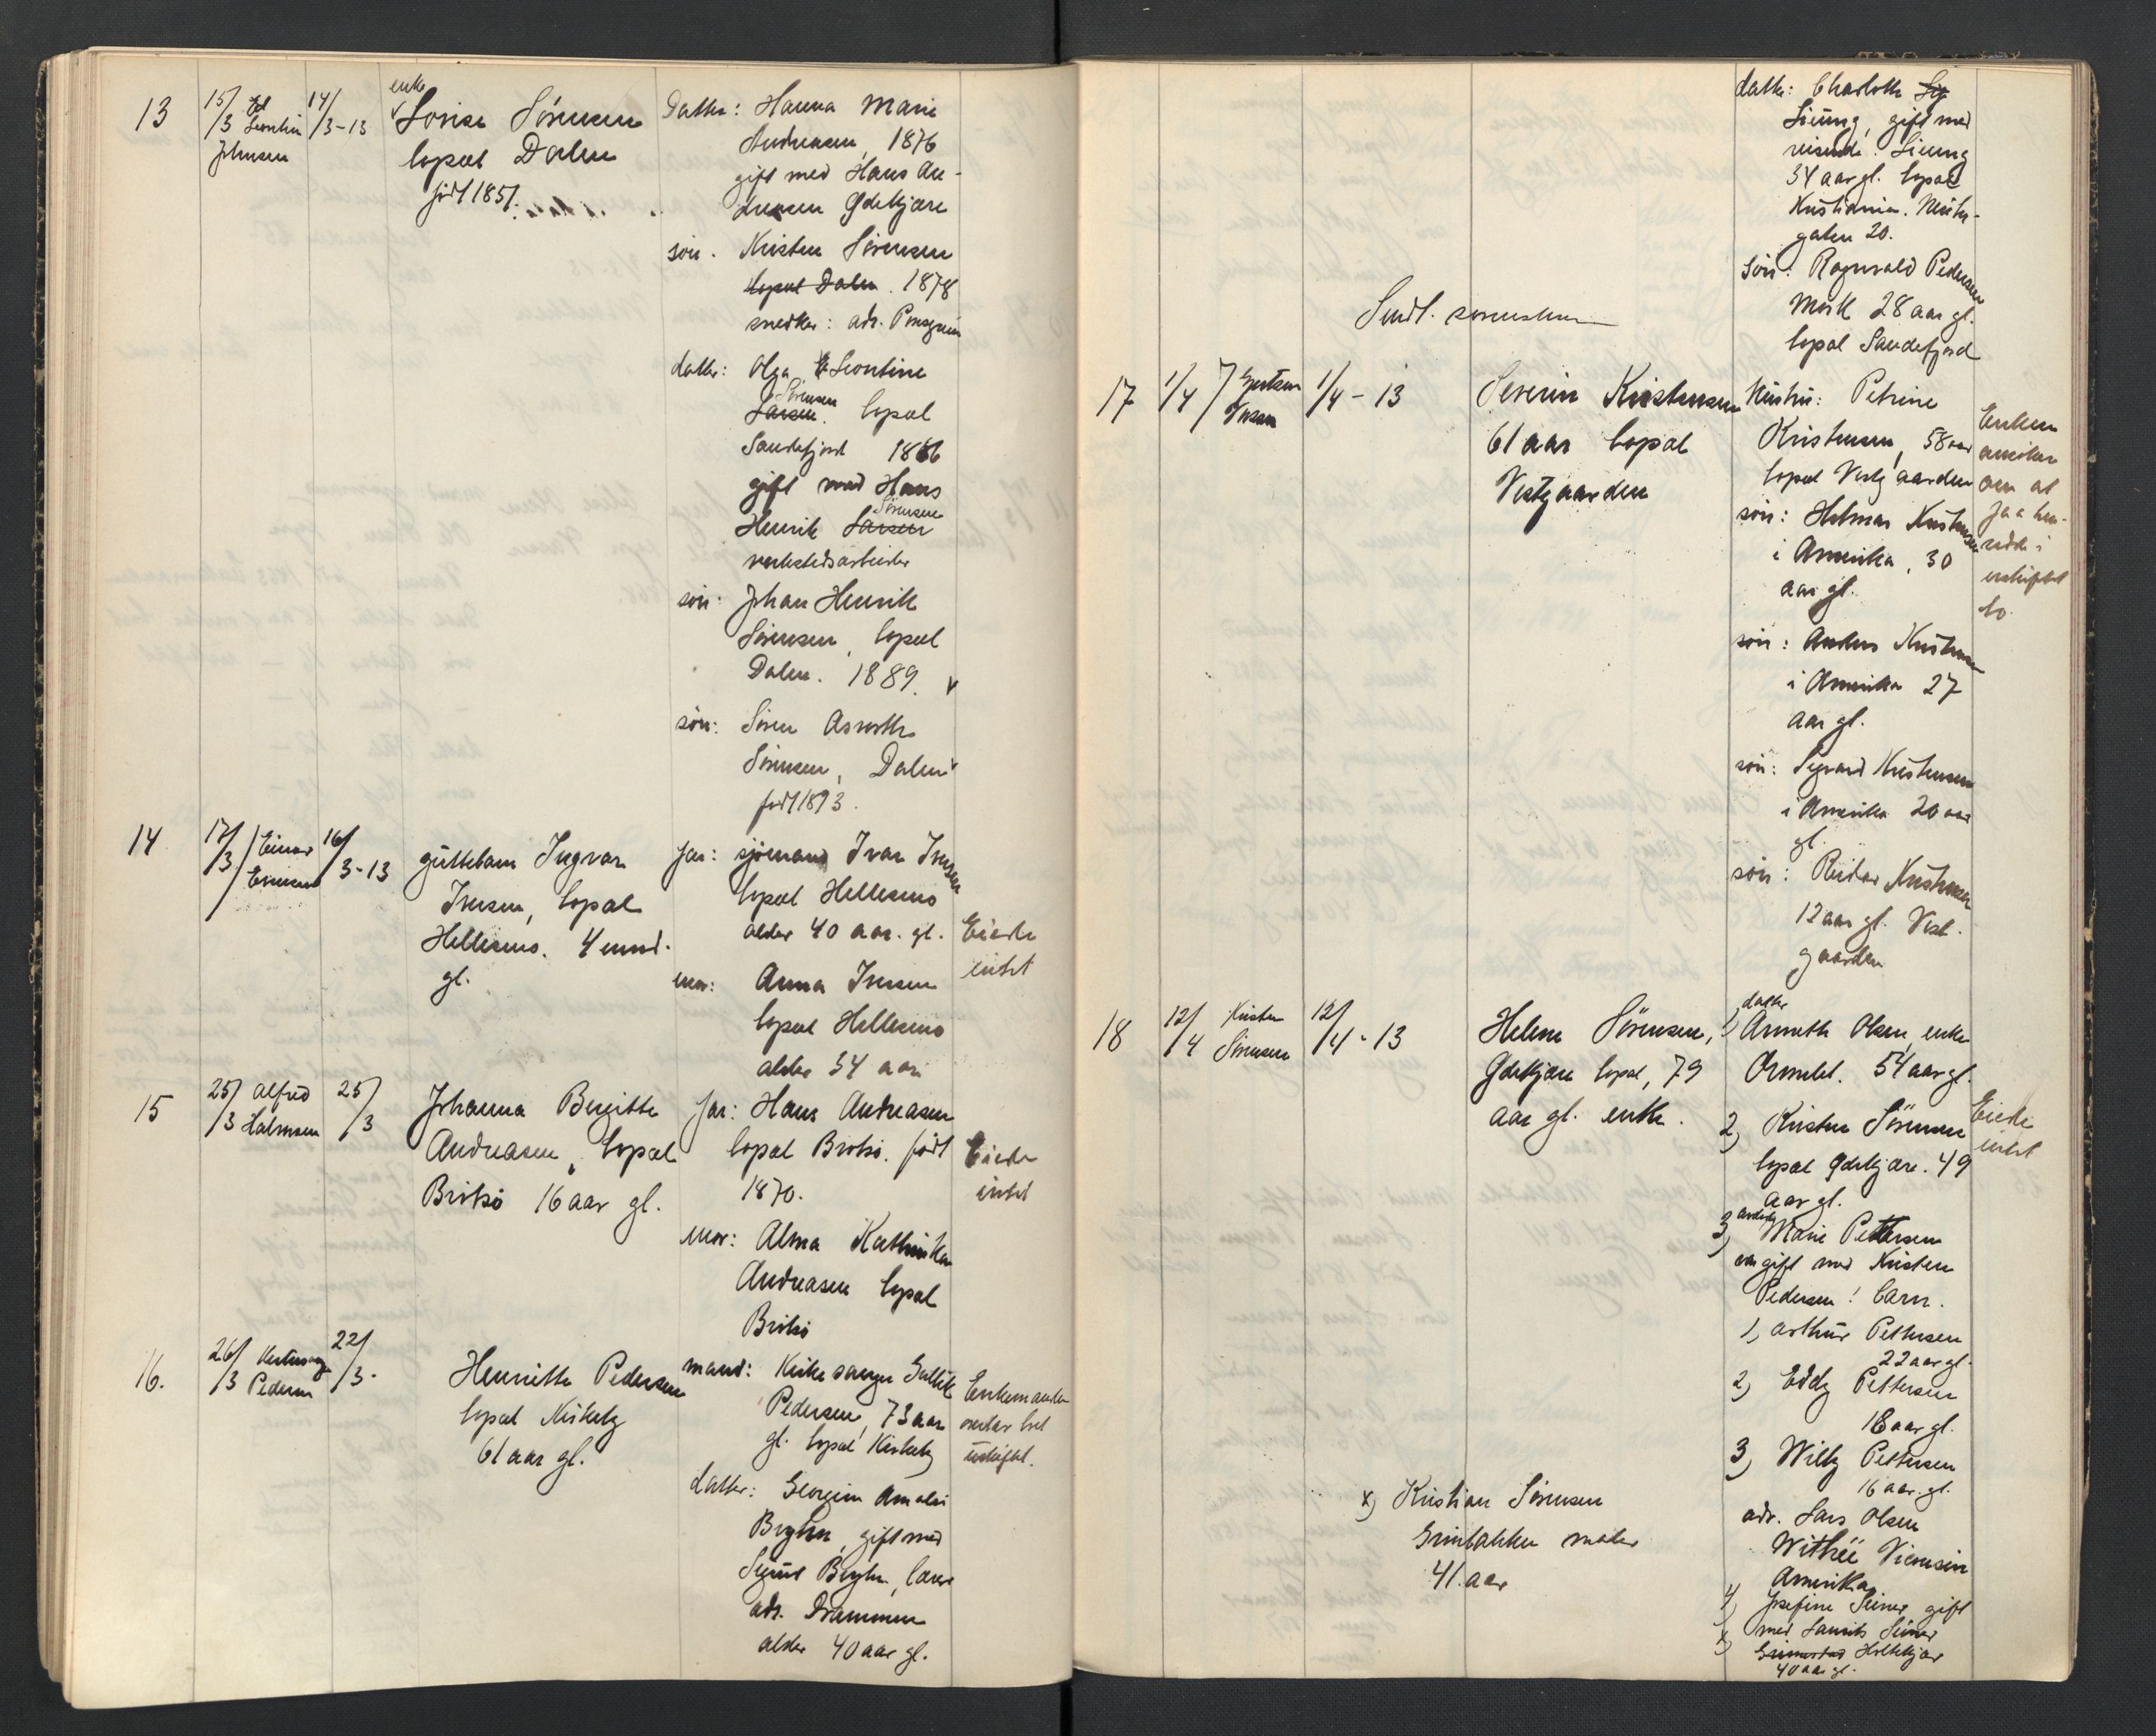 13
15/3 Leontin
Johnsen
14/3-13
enke
Lovise Sörensen
bopæl Dalen
født 1851.
Datter: Hanna Marie
Andreasen, 1876
gift med Hans An-
dreasen Gjdekjære
sön. Kristen Sörensen
bopæl Dalen. 1878
snedker: adr. Porsgrun
datter: Olga Leontine
Sörensen
Larsen. bopæl
Sandefjord 1886
gift med Hans
Sörensen
Henrik Larsen
verkstedsarbeider
sön: Johan Henrik
Sörensen, bopæl
Dalen. 1889.
sön: Sören Asvorth
Sörensen, Dalen
født 1893.
14
17/3 Einar
Evensen
16/3-13
guttebarn Ingvar
Iversen, bopæl
Hellesmo. 4 mnd.
gl.
far: sjömand Ivar Iversen
bopæl Hellesmo
alder 40 aar. gl.
mor: Anna Iversen
bopæl Hellesmo
alder 34 aar
Eiede
intet
15
25/3 Alfred
Halvorsen
25/3
Johanna Birgitte
Andreasen, bopæl
Britsö 16 aar gl.
far: Hans Andreasen
bopæl Britsö. født
1870.
mor: Alma Kathinka
Andreasen bopæl
Britsö
Eiede
intet
16.
26/3 Kirkesang
Pedersen
22/3.
Henriette Pedersen
bopæl Kirkeby
61 aar gl.
mand: Kirkesanger Gullik
Pedersen, 73 aar
gl. bopæl Kirkeby
datter: Georgine Amalie
Bryhn, gift med
Sigurd Bryhn, lærer
adr. Drammen
alder 40 aar gl.
Enkemanden
sitter i
uskiftet.
datter: Charlotte
Liung, gift med
reisende Liung
34 aar gl. bopæl
Kristiania.
gaten 20.
Sön: Ragnvald Pedersen
Mörk 28 aar gl.
bopæl Sandefjord
Sendt. sorenskr
17
1/4
1/4-13
Severin Kristensen
61 aar bopæl
Vestgaarden
Hustru: Petrine
Kristensen, 58 aar
bopæl Vestgaarden
sön: Hilmar Kristensen
i Amerika, 30
aar gl.
sön: Anders Kristensen
i Amerika 27
aar gl.
sön: Sigvard Kristensen
i Amerika 20 aar
gl.
sön: Reidar Kristensen
12 aar gl. Vest-
gaarden
Enken
ansöker
om at
faa hen-
sidde i
uskiftet
bo.
18
12/4 Kristen
Sörensen
12/4-13
Helene Sörensen,
Gjdekjære bopæl, 79
aar gl. enke.
datter
1) Anneth Olsen, enke
Ormelet. 54 aar gl.
2) Kristen Sörensen
bopæl Gjdekjære. 49
aar gl.
3) Marie Pettersen
gift med Kristen
Pedersen! barn.
1) Arthur Pettersen
22 aar gl.
2) Eddy Pettersen
18 aar gl.
3) Willy Pettersen
16 aar. gl.
adr. Lars Olsen
Amerika
4) Josefine Seiner gift
med Laurits Seiner
Holtekjær
40 aar gl.
Eiede
intet
x) Kristian Sörensen
Grimbakken maler
41 aar